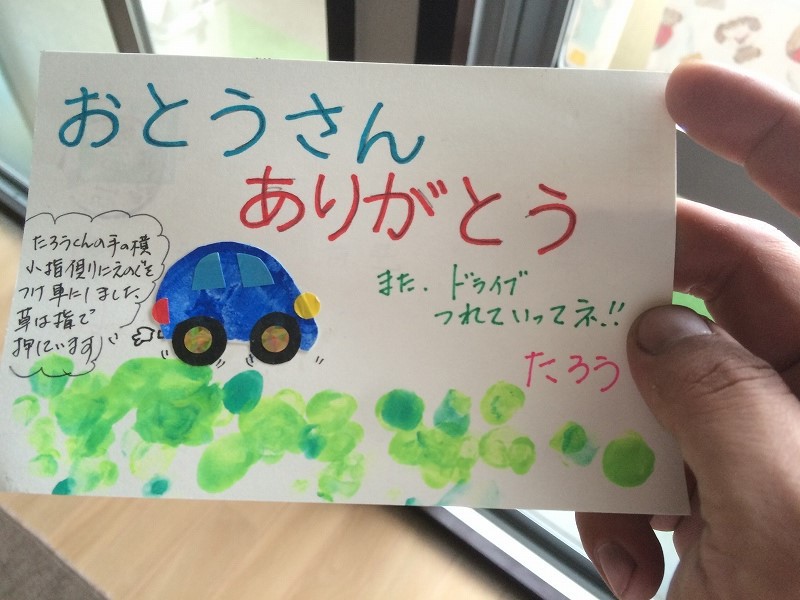 おとうさん
ありがとう
たろうくんの手の横
小指側にえのぐを
つけ車にしました。
草は指で
押しています
また、ドライブ
つれていってネ!!
たろう